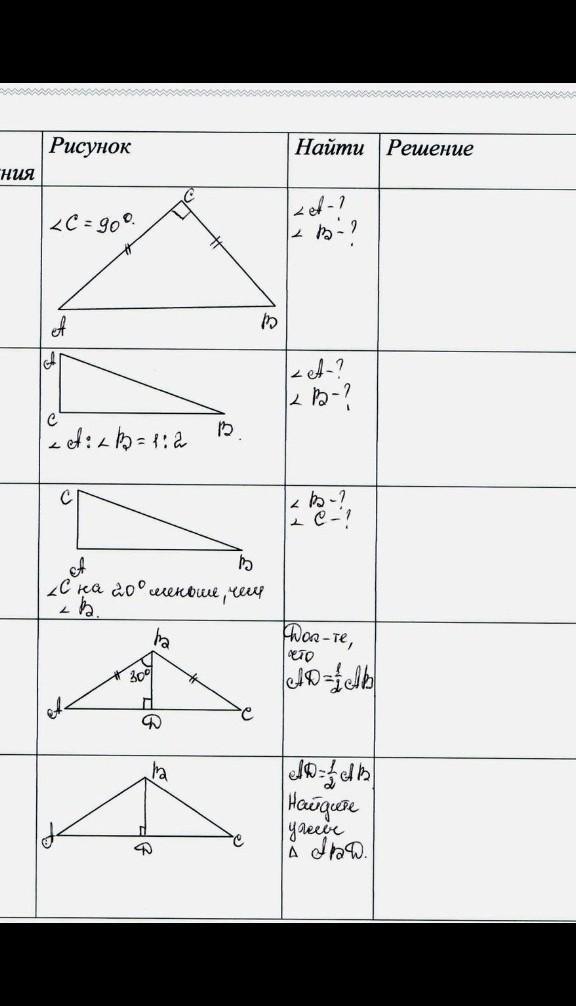 ния
Рисунок
Найти
Решение
∠C = 90°.
C
A
B
∠A - ?
∠B - ?
A
C
B.
∠A : ∠B = 1 : 2
∠A - ?
∠B - ?
C
A
B
∠C на 20° меньше, чем
∠B.
∠B - ?
∠C - ?
B
30°
A
D
C
Док-те,
что
AD = 1/2 AB
B
A
D
C
AD = 1/2 AB
Найдите
углы
Δ ABD.